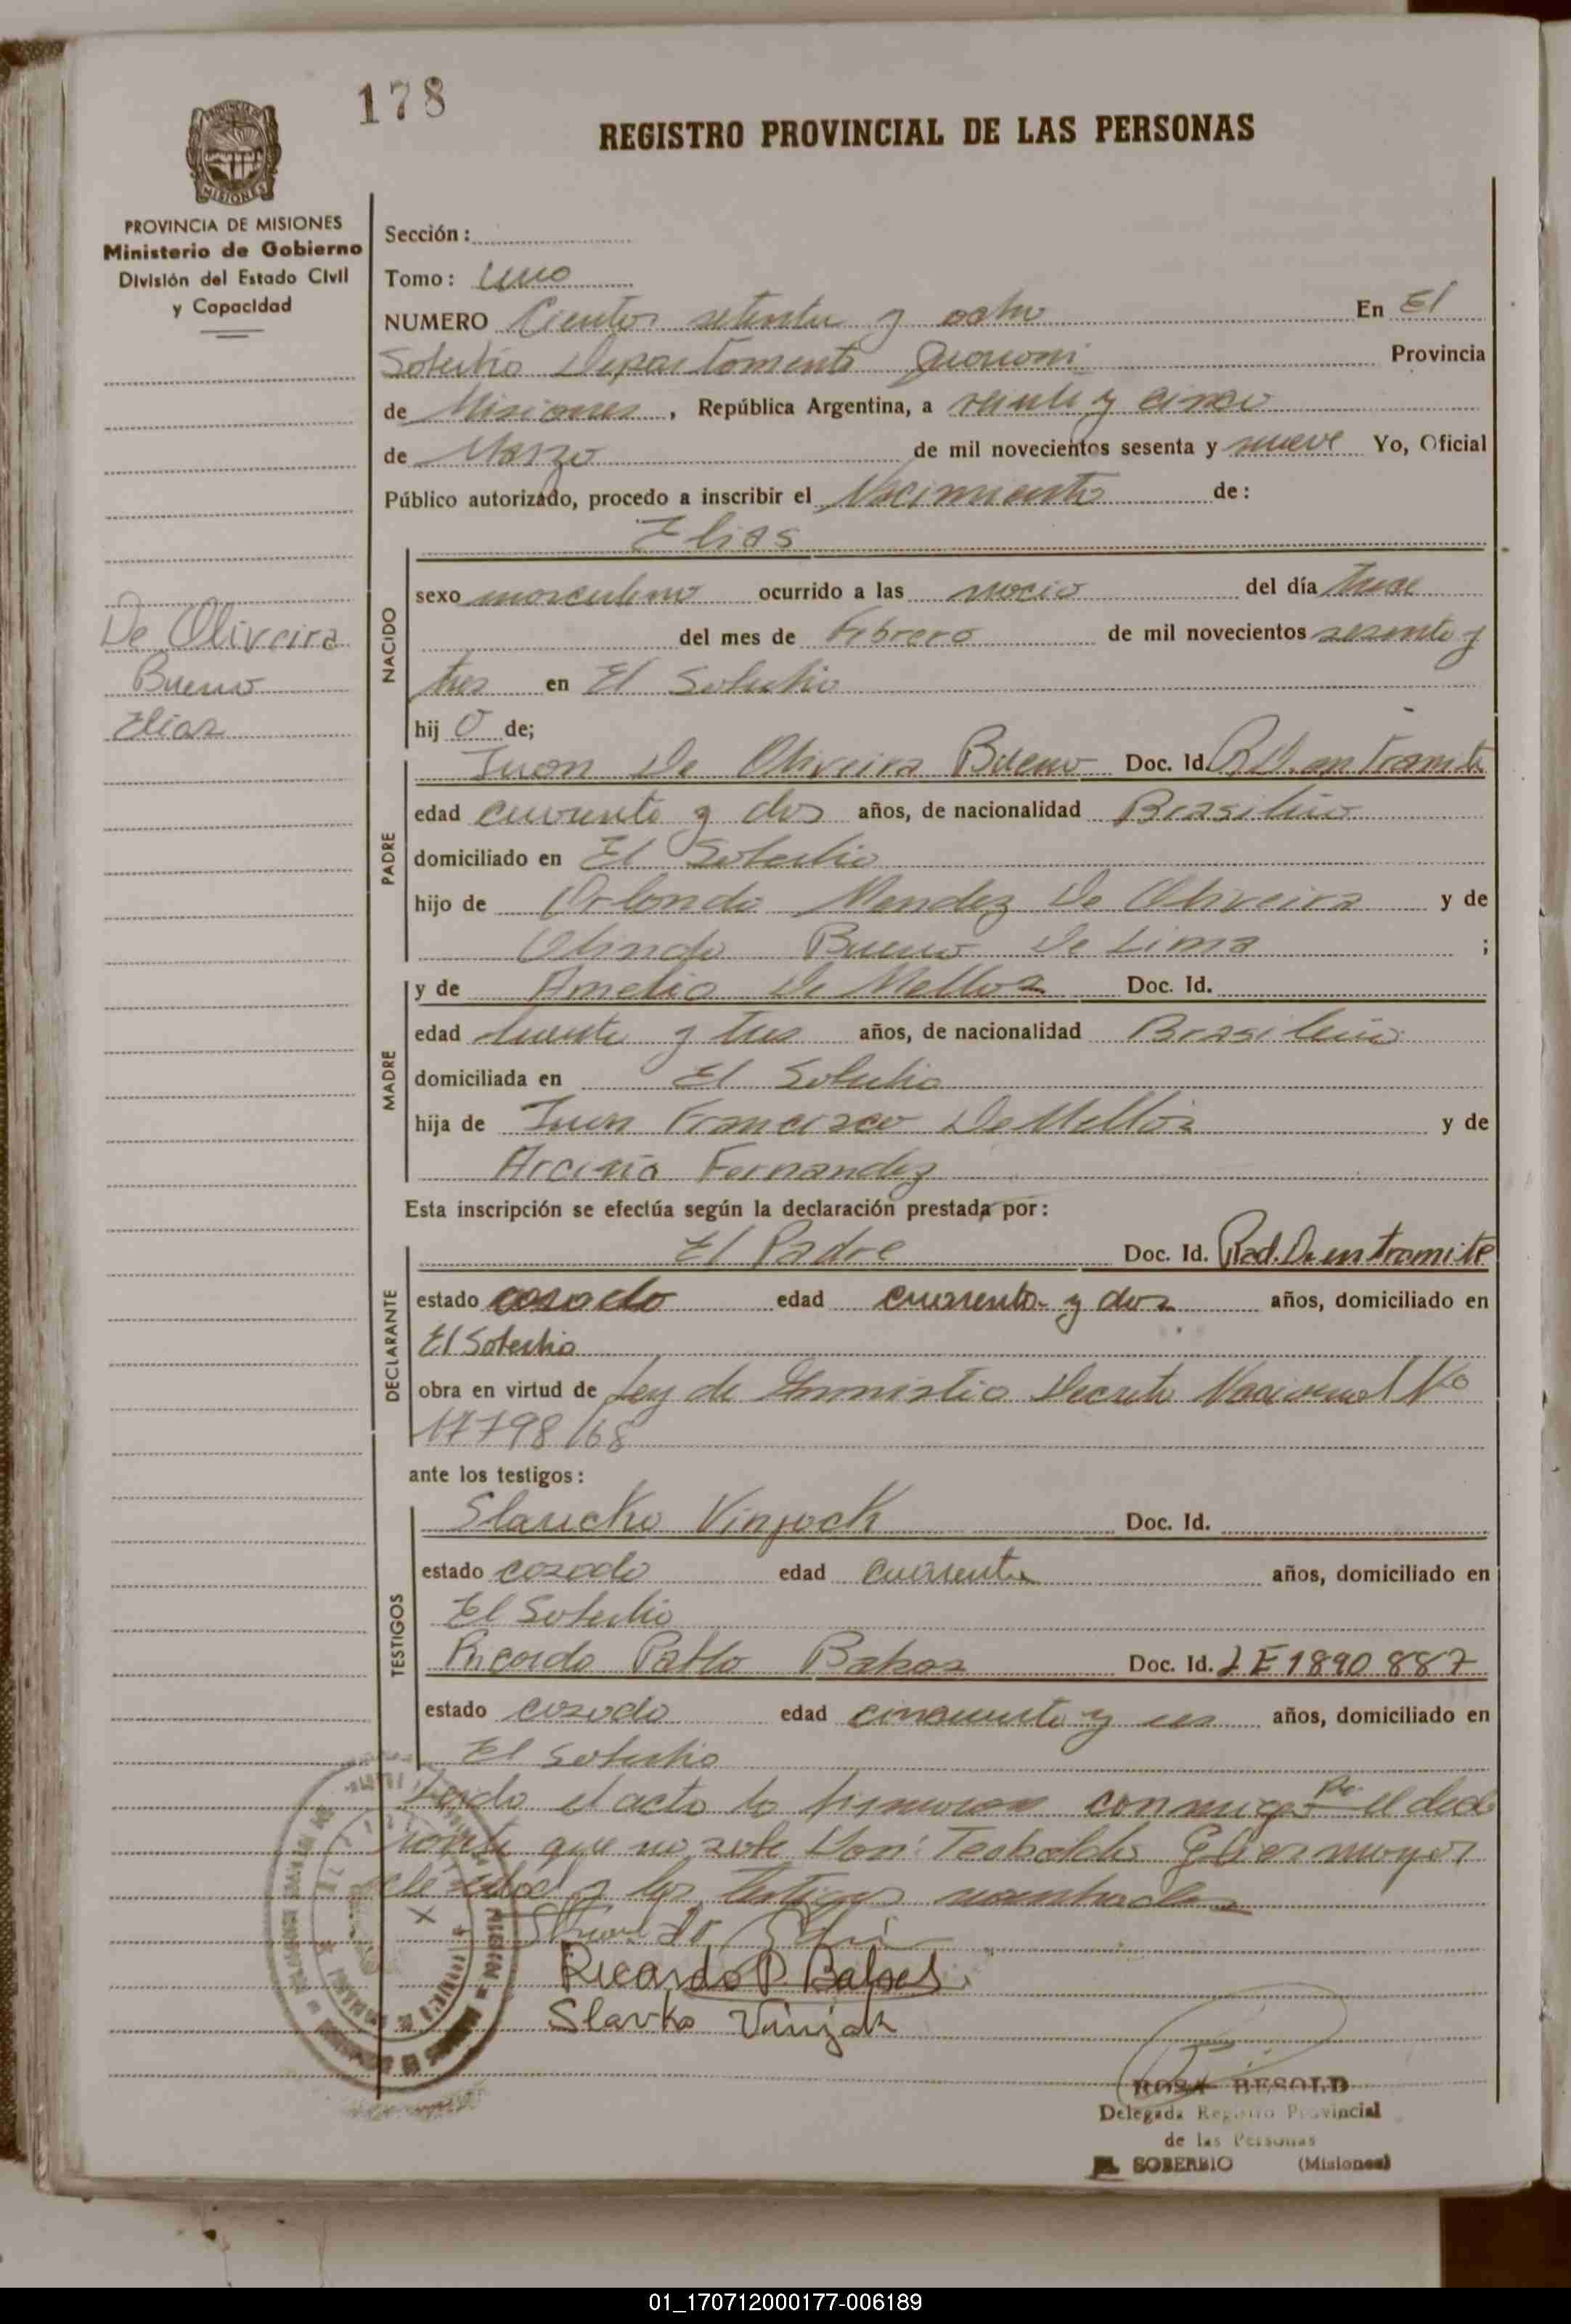 178
REGISTRO PROVINCIAL DE LAS PERSONAS
PROVINCIA DE MISIONES
Ministerio de Gobierno
División del Estado Civil
y Capacidad
Sección:
Tomo: Uno
NUMERO Ciento setenta y ocho En El
Soberbio Departamento Guarani Provincia
de Misiones, República Argentina, a veinte y cinco
de Marzo de mil novecientos sesenta y nueve Yo, Oficial
Público autorizado, procedo a inscribir el Nacimiento de:
Elias
NACIDO
sexo masculino ocurrido a las del día
del mes de Febrero de mil novecientos sesenta y
tres en El Soberbio
hij o de;
De Oliveira
Bueno
Elias
PADRE
Juan De Oliveira Bueno Doc. Id. R.D. en Tramite
edad cuarenta y dos años, de nacionalidad Brasileña
domiciliado en El Soberbio
hijo de Orlando Mendez De Oliveira y de
Olinda Bueno De Lima ;
MADRE
y de Amelia De Mello Doc. Id.
edad y tres años, de nacionalidad Brasileña
domiciliada en El Soberbio
hija de Juan Francisco De Mello y de
Fernandez
Esta inscripción se efectúa según la declaración prestada por:
DECLARANTE
El Padre Doc. Id. Rad. D. en tramite
estado casado edad cuarenta y dos años, domiciliado en
El Soberbio
obra en virtud de Ley de Amnistia Decreto Nacional No
17798/68
ante los testigos:
TESTIGOS
Slavicko Vinjack Doc. Id.
estado casado edad cuarenta años, domiciliado en
El Soberbio
Ricardo Pablo Doc. Id. LE 1890 887
estado casado edad cincuenta y un años, domiciliado en
El Soberbio
Leido el acto lo firmaron conmigo Po el decla
rante que no sabe Don: mayor
de edad y los testigos nombrados
Ricardo P.
Slavko Vinjak
ROSA BESOLD
Delegada Registro Provincial
de las Personas
EL SOBERBIO (Misiones)
01_170712000177-006189